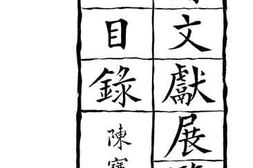 文獻展
目錄
陳